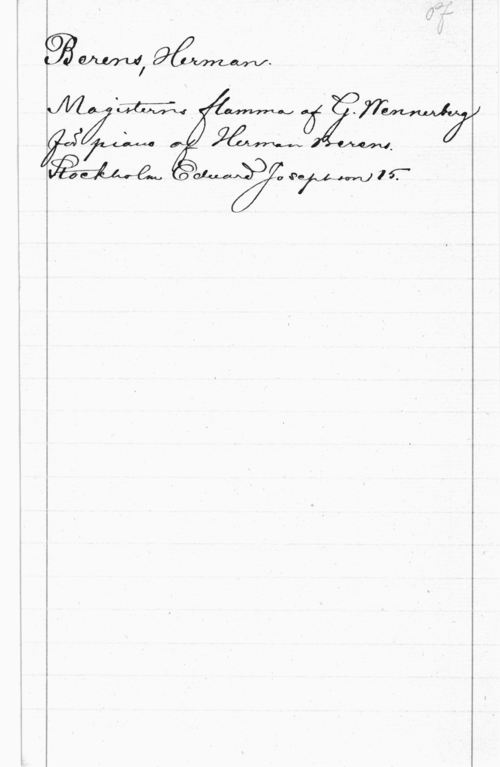 of
Berens, Herman.
Magisterns flamma af G. Wennerberg
för piano af Herman Berens.
Stockholm Eduard Josephson 15.